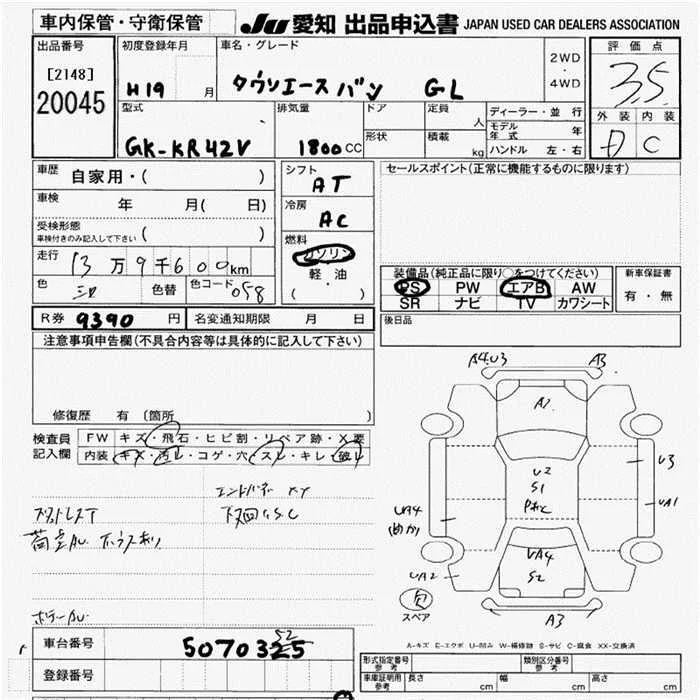 車内保管・守衛保管
JU 愛知 出品申込書 JAPAN USED CAR DEALERS ASSOCIATION
出品番号
[2148]
20045
初度登録年月
H19 月
車名・グレード
タウンエース バン GL
2WD
・
4WD
評価点
3.5
外装 内装
D C
型式
GK-KR42V
排気量
1800 CC
ドア
形状
定員
人
積載
kg
ディーラー・並行
モデル年式 年
ハンドル 左・右
車歴 自家用・( )
車検 年 月( 日)
受検形態
車検付きのみ記入して下さい ( )
走行 13万9千600km
色 シロ 色替 色コード 058
シフト
AT
冷房
AC
燃料
ガソリン
軽・油
( ・ )
セールスポイント(正常に機能するものに限ります)
装備品(純正品に限り○をつけてください)
PS PW エアB AW
SR ナビ TV カワシート
新車保証書
有・無
R券 9390 円 名変通知期限 月 日
後日品
注意事項申告欄(不具合内容等は具体的に記入して下さい)
修復歴 有 〔箇所 〕
検査員記入欄
FW キズ・飛石・ヒビ割・リペア跡・X要
内装 キズ・汚レ・コゲ・穴・スレ・キレ・破レ
下回りS.C
A4.U3 A3
A2
U2
S1
U3
UA1
UA4
UA4
S2
UA2
スペア
A3
A-キズ E-エクボ U-凹み W-補修跡 S-サビ C-腐食 XX-交換済
車台番号 5070325
52
登録番号
形式指定番号 参考
類別区分番号 参考
車庫証明用 参考 長さ cm 幅 cm 高さ cm